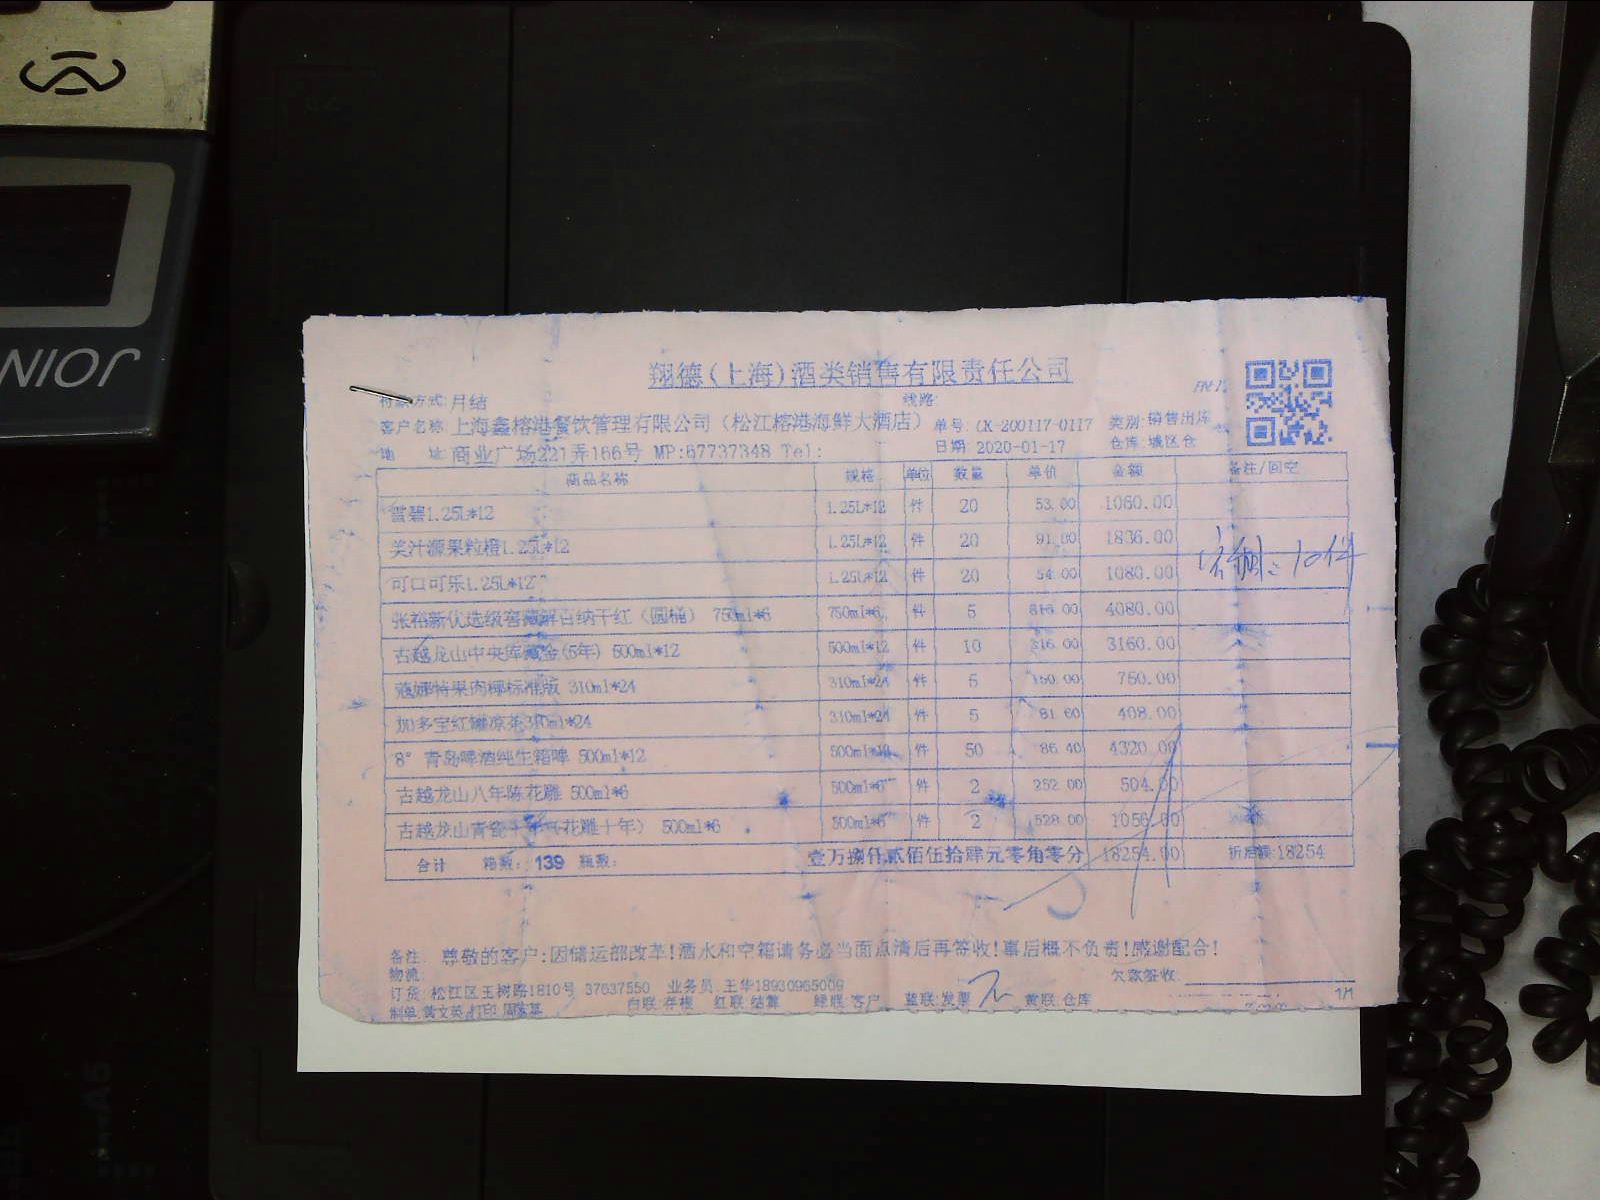 JOIN
翔德(上海)酒类销售有限责任公司
付款方式:月结 线路:
客户名称 上海鑫榕港餐饮管理有限公司（松江榕港海鲜大酒店） 单号: CK-200117-0117 类别:销售出库
地 址 商业广场221弄166号 MP:67737348 Tel: 日期:2020-01-17 仓库:城区仓
商品名称 规格 单位 数量 单价 金额 备注/回空
雪碧1.25L*12 1.25L*12 件 20 53.00 1060.00
美汁源果粒橙1.25L*12 1.25L*12 件 20 1836.00
可口可乐1.25L*12 1.25L*12 件 20 54.00 1080.00 10件
张裕新优选级窖藏解百纳干红（圆桶） 750ml*6 750ml*6 件 5 816.00 4080.00
古越龙山中央库藏金(5年) 500ml*12 500ml*12 件 10 316.00 3160.00
果肉椰标准版 310ml*24 310ml*24 件 5 150.00 750.00
加多宝红罐凉茶310ml*24 310ml*24 件 5 81.60 408.00
8° 青岛啤酒纯生箱啤 500ml*12 500ml*12 件 50 86.40 4320.00
古越龙山八年陈花雕 500ml*6 500ml*6 件 2 252.00 504.00
古越龙山青瓷十年（花雕十年） 500ml*6 500ml*6 件 2 528.00 1056.00
合计 箱数: 139 瓶数: 壹万捌仟贰佰伍拾肆元零角零分 18254.00 折后额:18254
备注: 尊敬的客户:因储运部改革!酒水和空箱请务必当面点清后再签收!事后概不负责!感谢配合!
物流: 欠款签收:
订货:松江区玉树路1810号 37637550 业务员:王华18930965009
制单:黄文英 打印: 白联:存根 红联:结算 绿联:客户 蓝联:发票 黄联:仓库 1/1